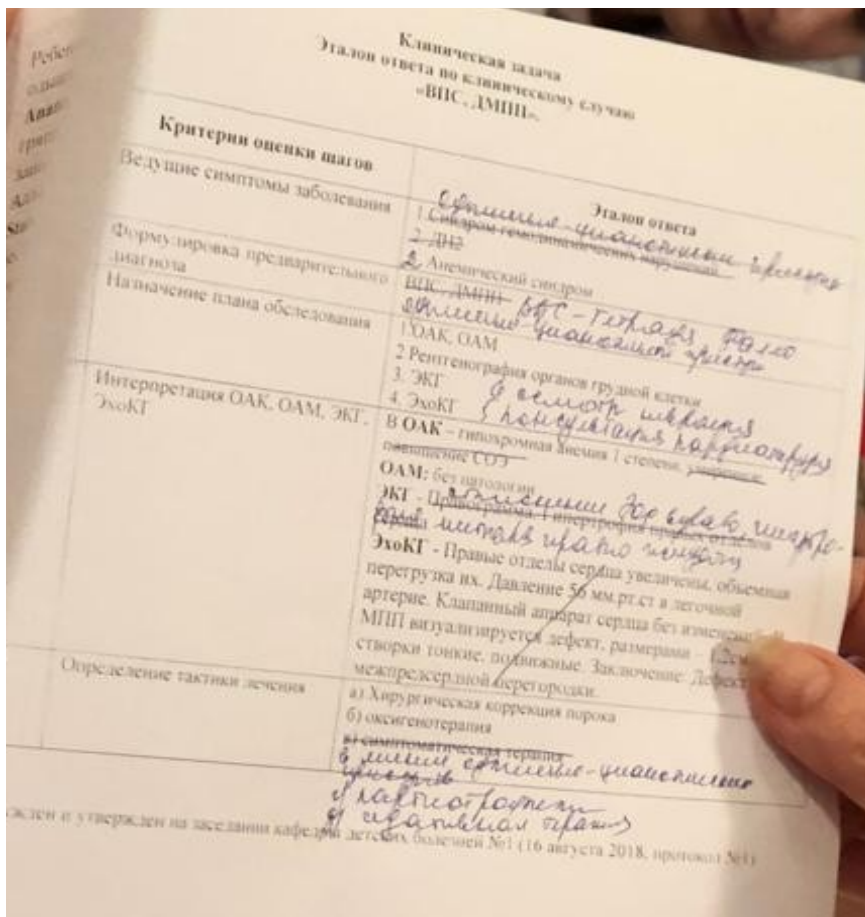 Клиническая задача
Эталон ответа по клиническому случаю
«ВПС, ДМПП».
Критерии оценки шагов
Эталон ответа
Ведущие симптомы заболевания
одышечно-цианотические приступы
1 Синдром гемодинамических нарушений
2. ДН2
2 Анемический синдром
Формулировка предварительного
диагноза
ВПС, ДМПП ВПС - Тетрада Фалло
одышечно-цианотический приступ
Назначение плана обследования
1 ОАК, ОАМ
2 Рентгенография органов грудной клетки
3. ЭКГ
4. ЭхоКГ
консультация кардиохирурга
Интерпретация ОАК, ОАМ, ЭКГ,
ЭхоКГ
В ОАК – гипохромная анемия 1 степени,
повышение СОЭ
ОАМ: без патологии
ЭКГ - Правограмма. Гипертрофия правых отделов
сердца
ЭхоКГ - Правые отделы сердца увеличены, объемная
перегрузка их. Давление 56 мм.рт.ст в легочной
артерие. Клапанный аппарат сердца без изменений.
МПП визуализируется дефект, размерами – 1,2см
створки тонкие, подвижные. Заключение: Дефект
межпредсердной перегородки.
Определение тактики лечения
а) Хирургическая коррекция порока
б) оксигенотерапия
в) симптоматическая терапия
одышечно-цианотического
г) кардиотрофики
д) седативная терапия
и утвержден на заседании кафедры детских болезней №1 (16 августа 2018, протокол №1)